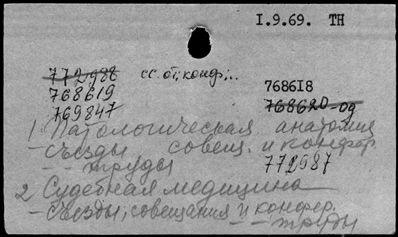 I.9.69. TH
772988 сс.от; конф;..
768618
768619
768620-од
769847
1 Патологическая анатомия
- съезды совещ. и конфер.
- - труды
772987
2 Судебная медицина
- съезды, совещания и конфер.
- - труды